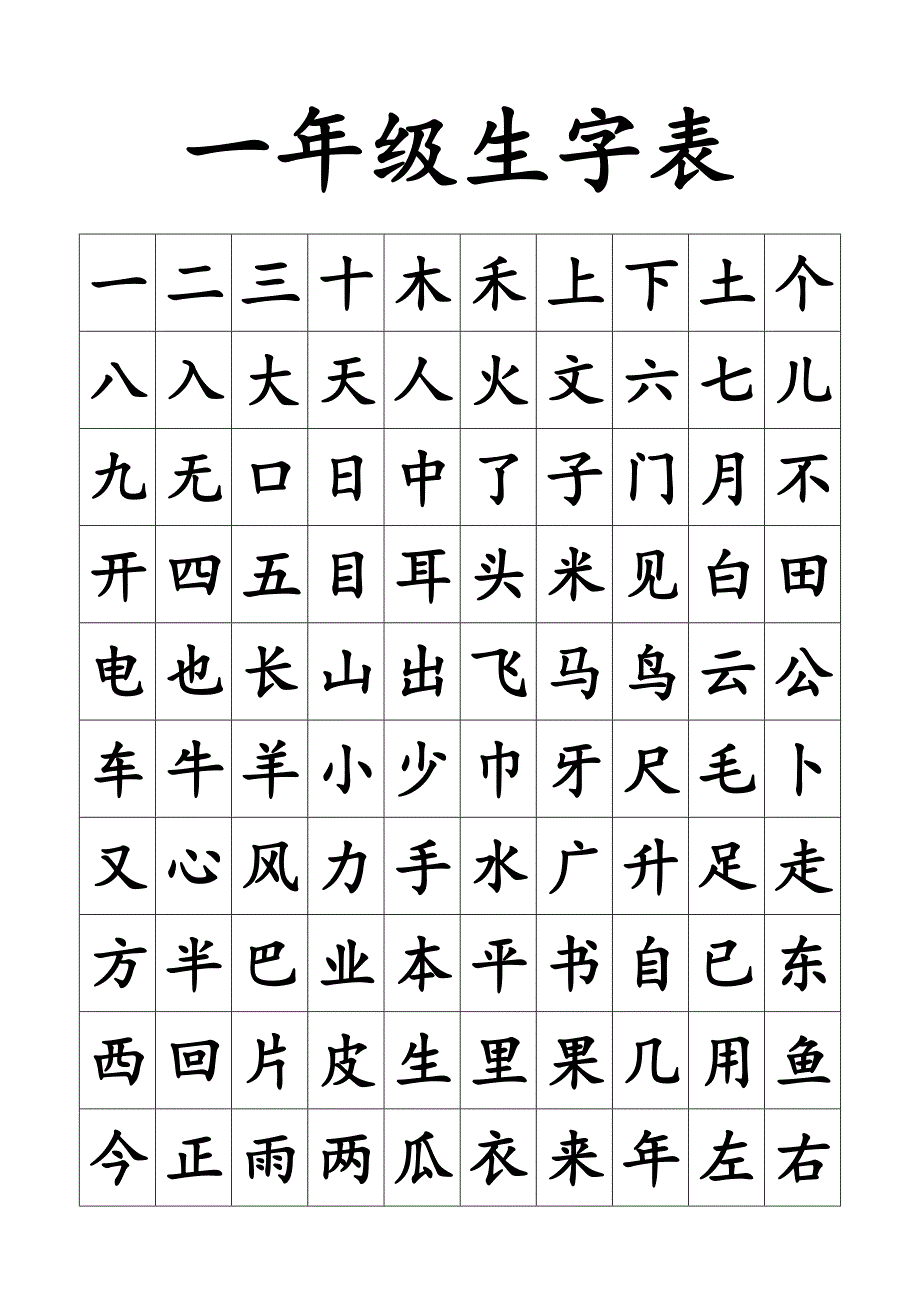 一年级生字表
一 二 三 十 木 禾 上 下 土 个
八 入 大 天 人 火 文 六 七 儿
九 无 口 日 中 了 子 门 月 不
开 四 五 目 耳 头 米 见 白 田
电 也 长 山 出 飞 马 鸟 云 公
车 牛 羊 小 少 巾 牙 尺 毛 卜
又 心 风 力 手 水 广 升 足 走
方 半 巴 业 本 平 书 自 已 东
西 回 片 皮 生 里 果 几 用 鱼
今 正 雨 两 瓜 衣 来 年 左 右